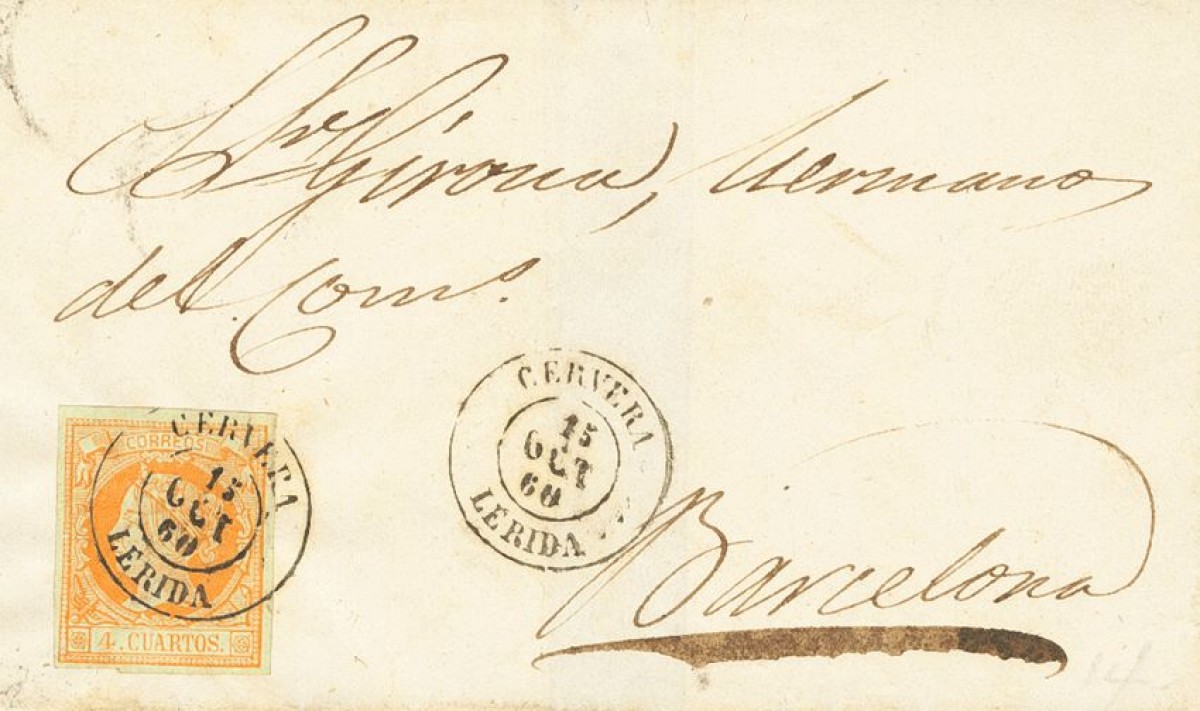 Sres Girona, hermanos
del Coms.
CERVERA
15
OCT
60
LERIDA
CORREOS
4. CUARTOS.
CERVERA
15
OCT
60
LERIDA
Barcelona